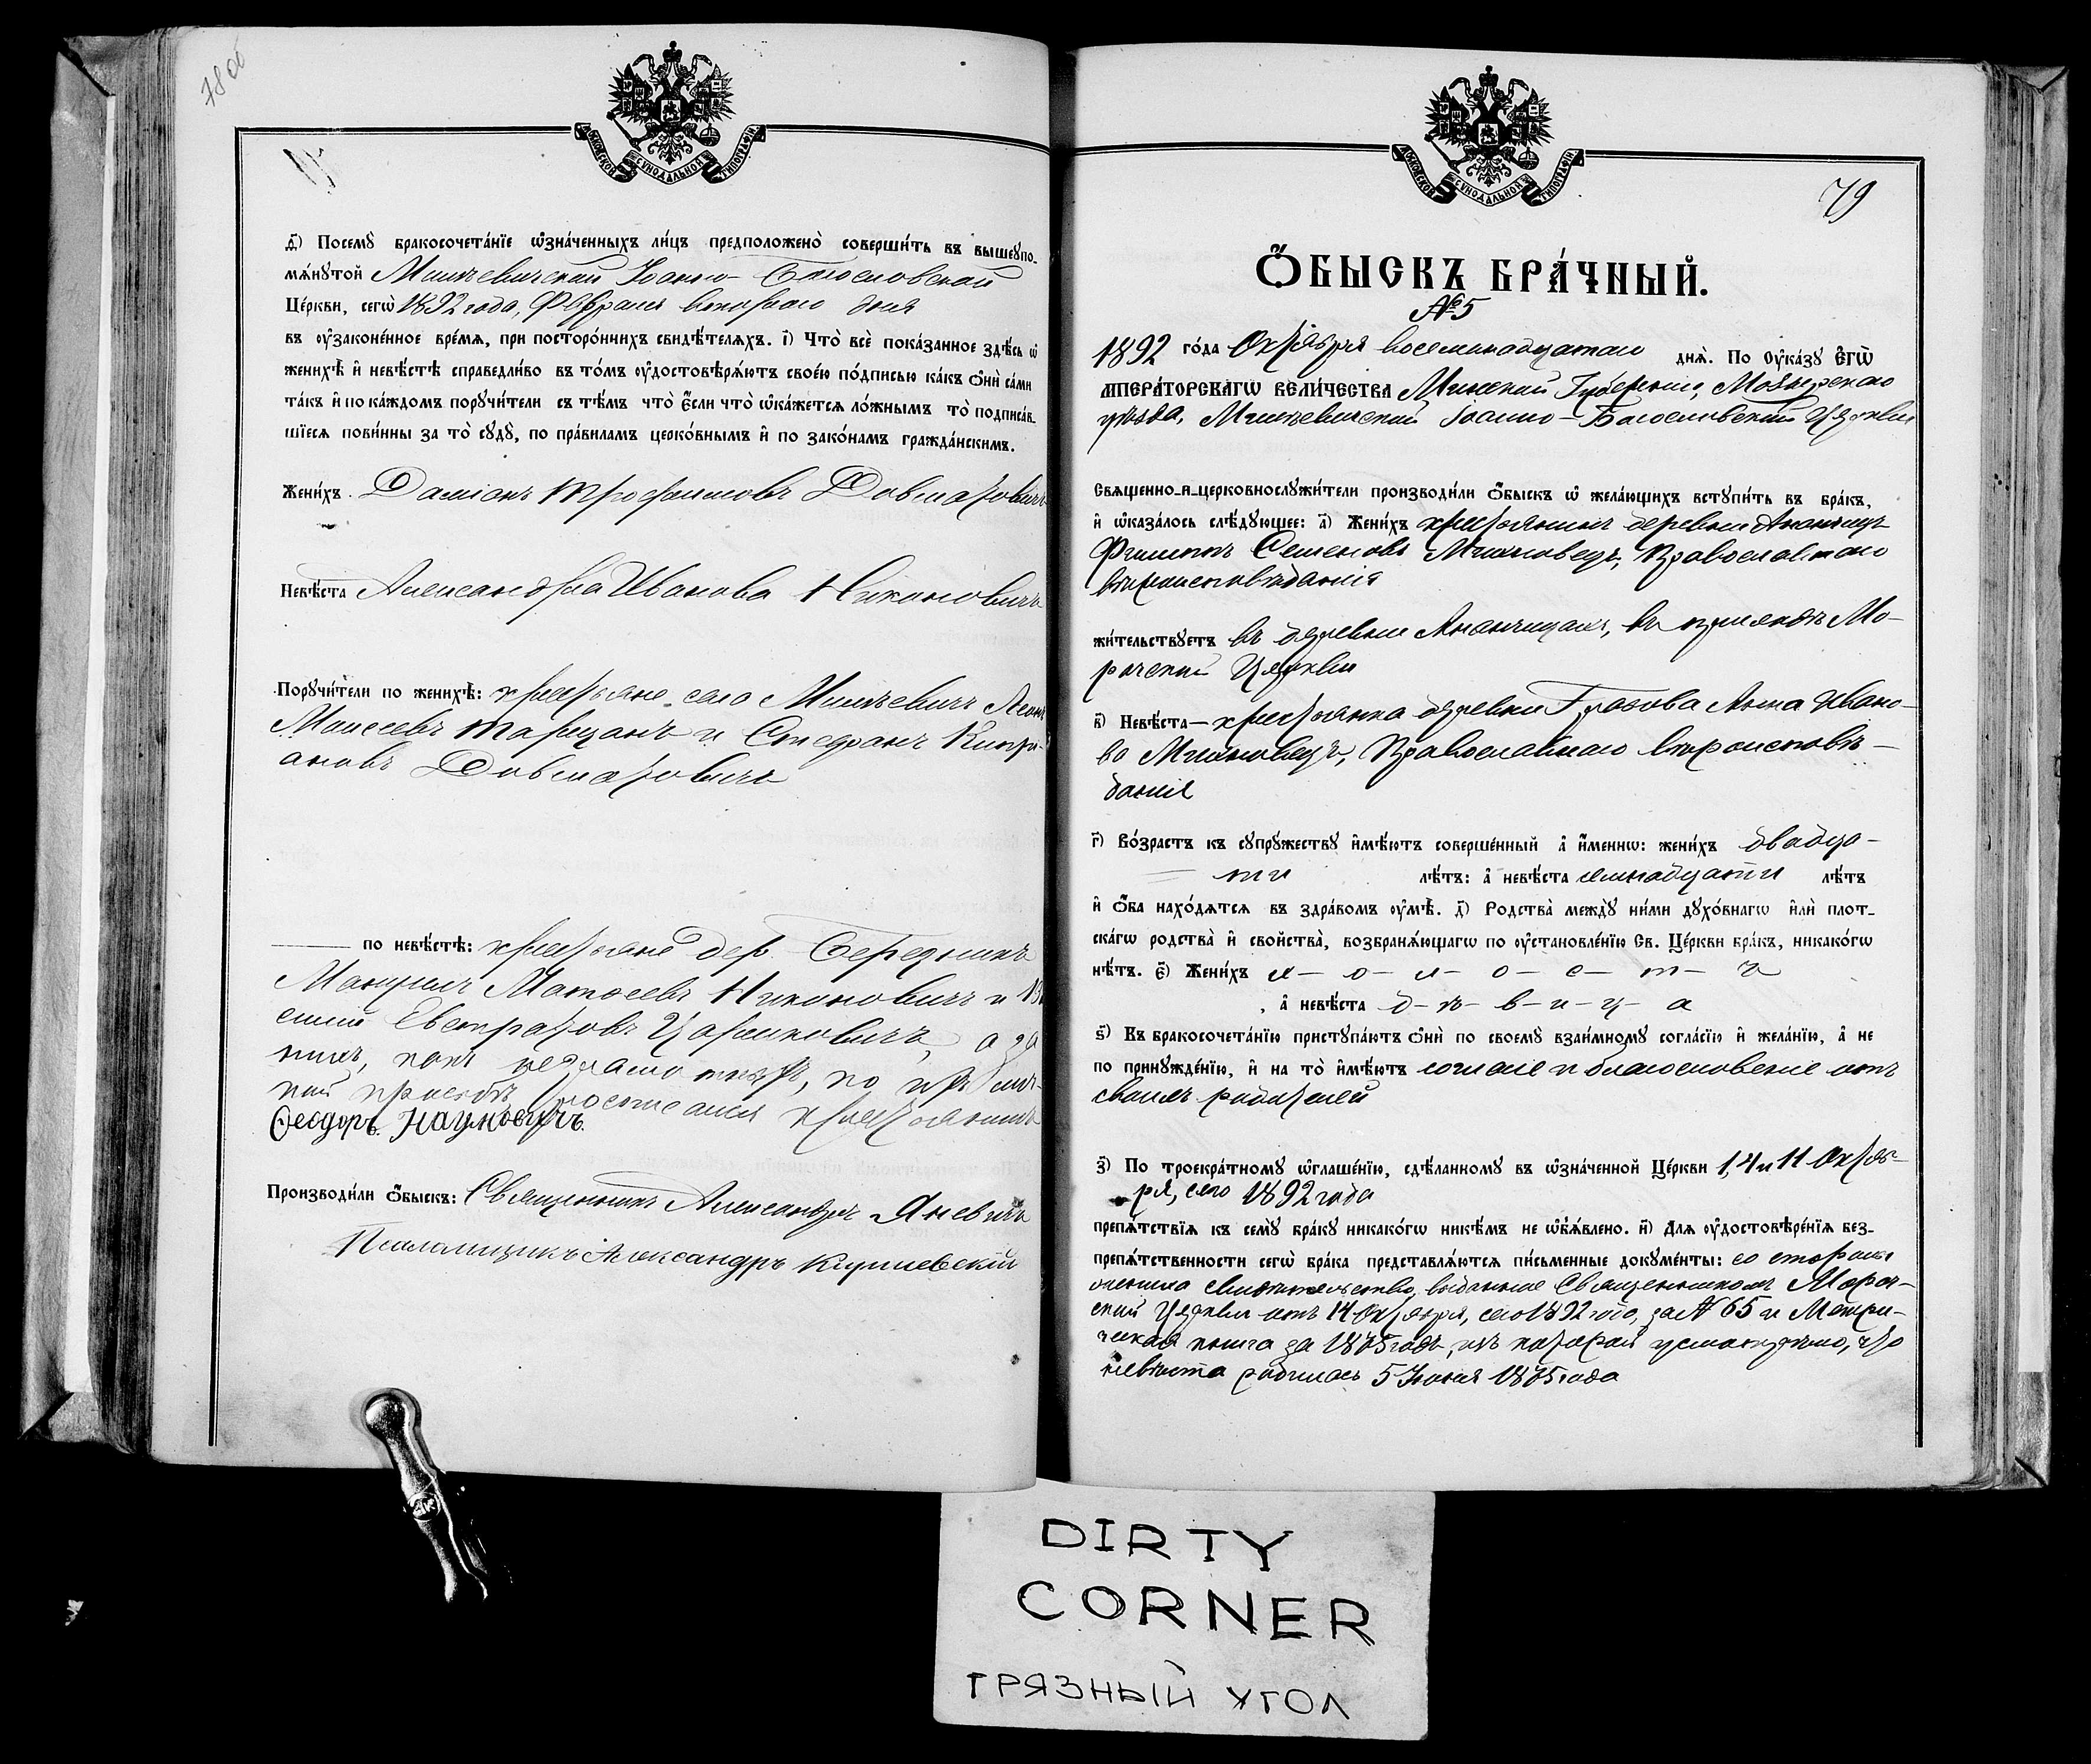 78 об
МОСКОВСКОЙ СУНОДАЛЬНОЙ ТИПОГРАФІИ
д҃) Посемꙋ бракосочета́нїе ѡ҆зна́ченныхъ ли́цъ предположено̀ соверши́ть въ вышеꙋпо-
мѧ́нꙋтой Милевичской Іоанно-Богословской
Це́ркви, сегѡ̀ 1892 года, Февраля второго дня
въ ᲂу҆зако́ненное вре́мѧ, при посторо́ннихъ свидѣ́телѧхъ. і҃) Что̀ всѐ пока́занное здѣ́сь ѡ҆
женихѣ̀ и҆ невѣ́стѣ справедли́во въ то́мъ ᲂу҆достовѣрѧ́ютъ свое́ю по́дписью ка́къ ѻ҆нѝ са́ми
та́къ и҆ по ка́ждомъ порꙋчи́тели съ тѣ́мъ что̀ є҆́сли что̀ ѡ҆ка́жетсѧ ло́жнымъ то̀ подписа́в-
шїесѧ пови́нны за то̀ сꙋдꙋ̀, по пра́виламъ церко́внымъ и҆ по зако́намъ гражда́нскимъ.
Жени́хъ Даміанъ Трофимовъ Довгаровичъ
Невѣ́ста Александра Иванова Никоновичъ
Порꙋчи́тели по женихѣ̀: крестьяне села Милевичъ
Моисеевъ и Стефанъ Кипрі-
ановъ
по невѣ́стѣ: крестьяне дер.
Матѳеевъ Никоновичъ и
а за
нихъ, какъ неграмотныхъ, по ихъ лич-
ной просьбѣ росписался крестьянинъ
Ѳеодоръ Наумовичъ
Производи́ли ѻ҆́быскъ: Священникъ Александръ Яневичъ
Псаломщикъ Александръ
МОСКОВСКОЙ СУНОДАЛЬНОЙ ТИПОГРАФІИ
79
Ѻ҆́БЫСКЪ БРА́ЧНЫЙ.
№ 5
1892 го́да Октября восемнадцатаго днѧ̀. По ᲂу҆ка́зꙋ є҆гѡ̀
ИМПЕРА́ТОРСКАГѠ ВЕЛИ́ЧЕСТВА Минской Губерніи, Мозырскаго
уѣзда, Милевичской Іоанно-Богословской Церкви
Свѧщенно-и҆-церковнослꙋжи́тели производи́ли ѻ҆́быскъ ѡ҆ жела́ющихъ встꙋпи́ть въ бра́къ,
и҆ ѡ҆каза́лось слѣ́дꙋющее: а҃) Жени́хъ крестьянинъ деревни Ананчицъ
Филиппъ Семеновъ Михновецъ, Православнаго
вѣроисповѣданія
жи́тельствꙋетъ въ деревни Ананчицахъ, въ приходѣ Мо-
рочской Церкви
в҃) Невѣ́ста — крестьянка деревни Грозова Анна Ивано-
ва Михновецъ, Православнаго вѣроисповѣ-
данія
г҃) Во́зрастъ къ сꙋпрꙋ́жествꙋ и҆мѣ́ютъ соверше́нный а҆ и҆́менно: жени́хъ двадца-
ти лѣ́тъ: а҆ невѣ́ста семнадцати лѣ́тъ
и҆ ѻ҆́ба нахо́дѧтсѧ въ здра́вомъ ᲂу҆мѣ̀. д҃) Родства̀ междꙋ̀ ни́ми дꙋхо́внагѡ и҆лѝ плот-
ска́гѡ родства̀ и҆ свойства̀, возбранѧ́ющагѡ по ᲂу҆становле́нїю Св. Це́ркви бра́къ, никако́гѡ
нѣ́тъ. є҃) Жени́хъ х-о-л-о-с-т-ъ
, а҆ невѣ́ста д-ѣ-в-и-ц-а
ѕ҃) Въ бракосочета́нїю пристꙋпа́ютъ ѻ҆нѝ по своемꙋ̀ взаи́мномꙋ согла́сїю и҆ жела́нїю, а҆ не
по принꙋжде́нїю, и҆ на то̀ и҆мѣ́ютъ согласіе и благословеніе отъ
своихъ родителей
з҃) По троекра́тномꙋ ѡ҆глаше́нїю, сдѣ́ланномꙋ въ ѡ҆зна́ченной Це́ркви 1, 4 и 11 Октяб-
ря, сего 1892 года
препѧ́тствїѧ къ семꙋ̀ бра́кꙋ никако́гѡ никѣ́мъ не ѡ҆б̾ѧ́влено. и҃) Длѧ ᲂу҆достовѣре́нїѧ без-
препѧ́тственности сегѡ̀ бра́ка представлѧ́ютсѧ пи́сьменные докꙋме́нты: со стороны
жениха свидѣтельство, выданное Священникомъ Мороч-
ской Церкви отъ 14 Октября, сего 1892 года, за № 65 и Метри-
ческая книга за 1875 годъ, изъ которой усмотрѣно, что
невѣста родилась 5 Іюня 1875 года
DIRTY
CORNER
ГРЯЗНЫЙ УГОЛ